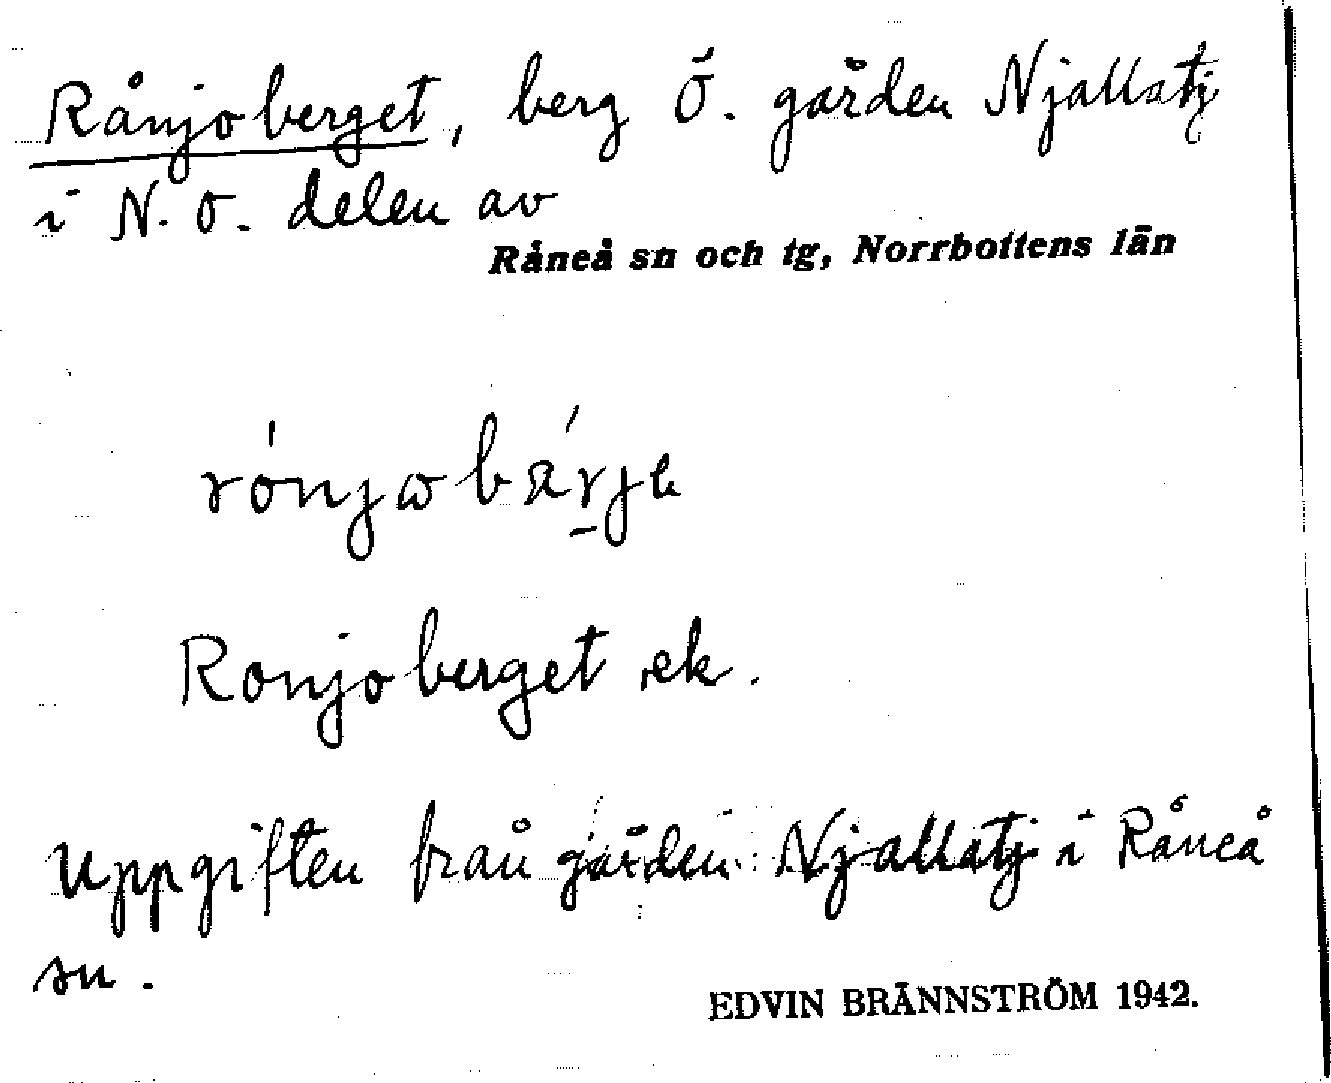 Rånjoberget, berg Ö. gården Njallatj
i N.O. delen av
Råneå sn och tg, Norrbottens län
Ronjoberget ek.
Uppgiften från gården Njallatj i Råneå
sn.
EDVIN BRÄNNSTRÖM 1942.